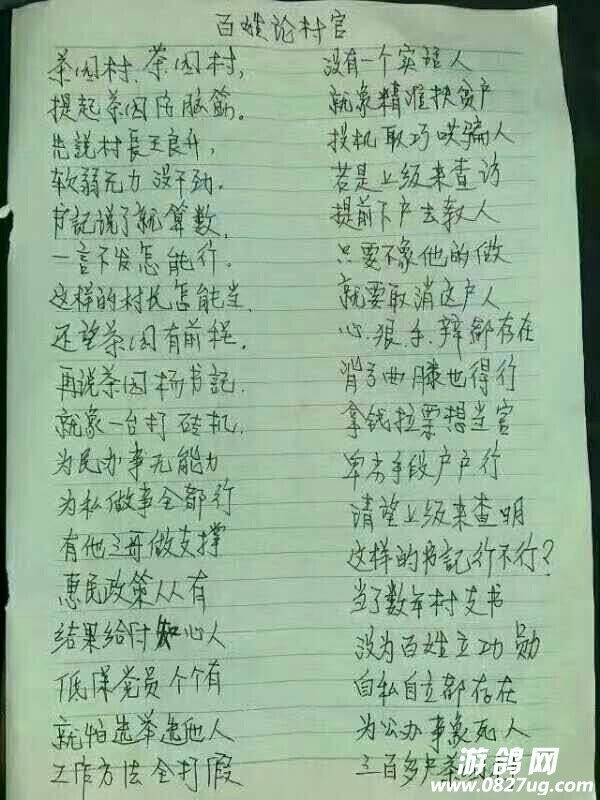 百姓论村官
茶园村、茶园村,
提起茶园伤脑筋。
先说村長王良升,
软弱无力没干劲.
书记说了就算数,
一言不发怎能行.
这样的村长怎能当,
还望茶园有前程.
再说茶园杨书记.
就象一台打砖机.
为民办事无能力
为私做事全都行
有他三哥做支撑
惠民政策人人有
结果给付知心人
低保党员个个有
就怕选举选他人
工作方法全打假
没有一个实话人
就象精准扶贫户
投机取巧哄骗人
若是上级来查访
提前下户去教人
只要不象他的做
就要取消这户人
心.狠.手.辣都存在
背弓曲膝也得行
拿钱拉票想当官
卑劣手段户户行
请望上级来查明
这样的书记行不行?
当了数年村支书
没为百姓立功勋
自私自立都存在
为公办事象死人
三百多户茶
游鸽网
www.0827ug.com